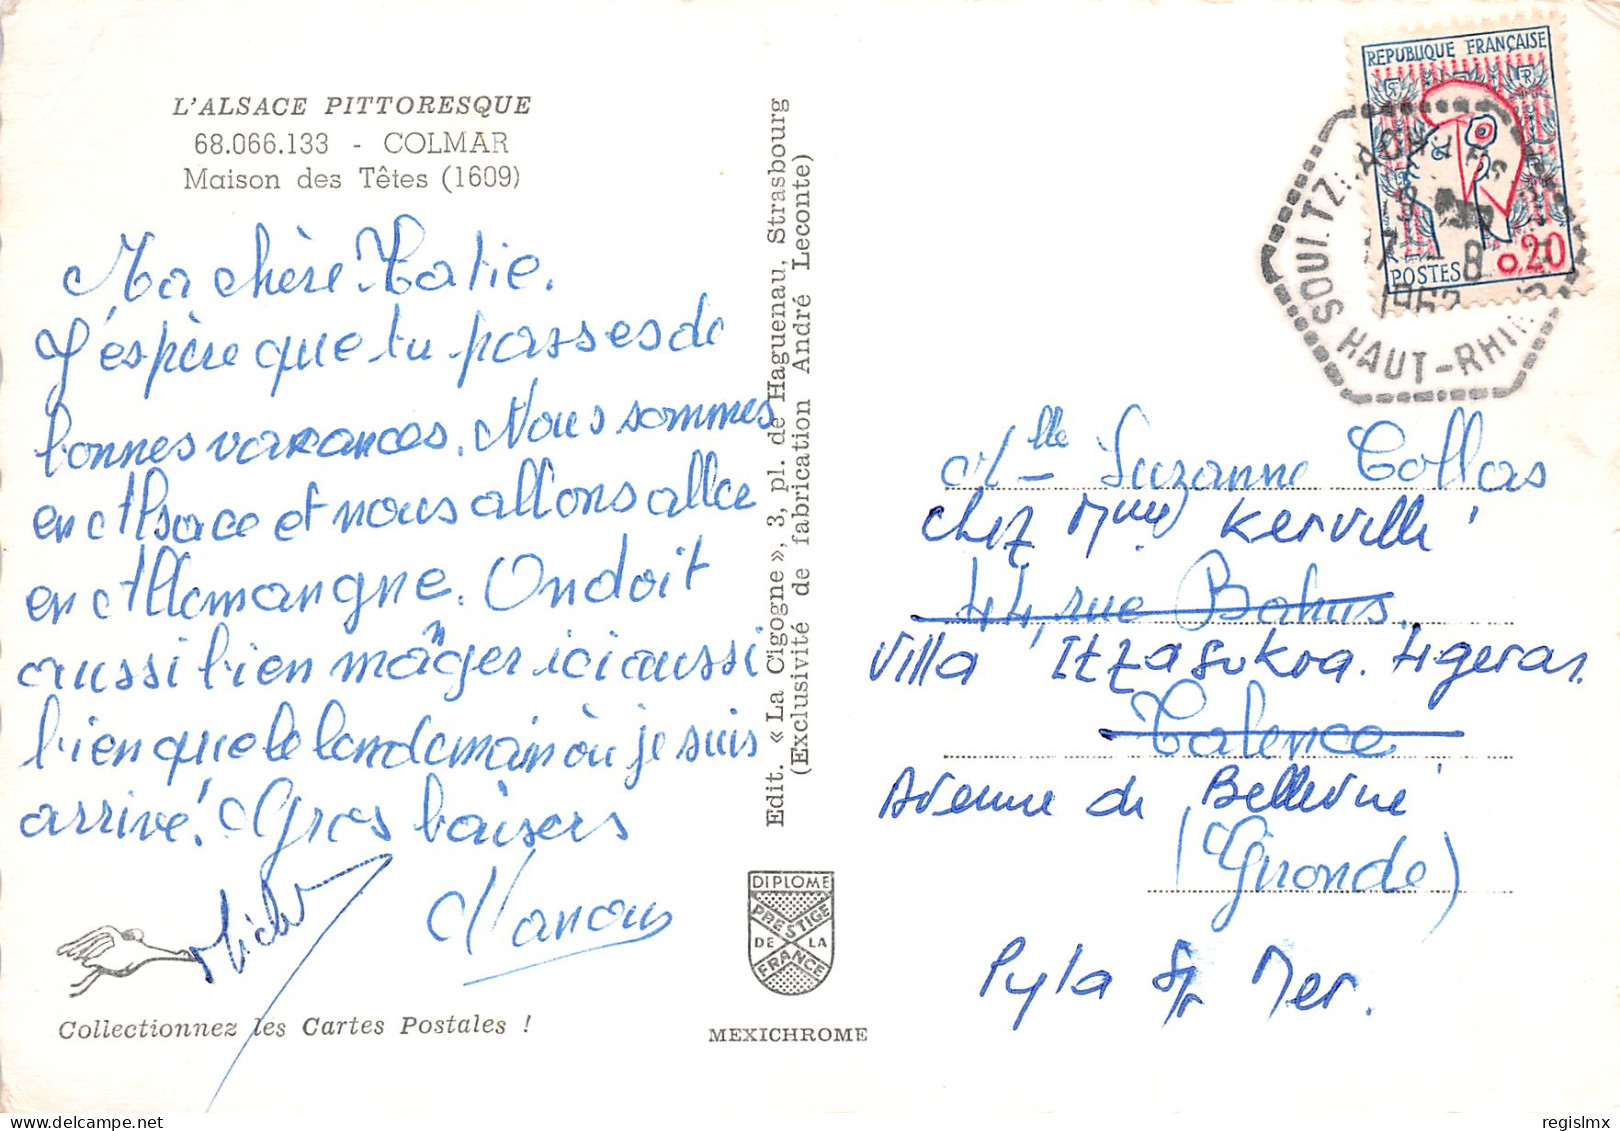 L'ALSACE PITTORESQUE
68.066.133 - COLMAR
Maison des Têtes (1609)
Ma chère Katie.
J'espère que tu passes de
bonnes vacances. Nous sommes
en Alsace et nous allons aller
en Allemangne. On doit
aussi bien manger ici aussi
bien que le lendemain où je suis
arrivé! Gros baisers
Collectionnez les Cartes Postales !
Edit. « La Cigogne », 3, pl. de Haguenau, Strasbourg
(Exclusivité de fabrication André Leconte)
DIPLOME
PRESTIGE
DE LA
FRANCE
MEXICHROME
REPUBLIQUE FRANÇAISE
POSTES 0,20
SOULTZBACH LES
17 - 8
1962
HAUT-RHIN
Mlle Suzanne Collas
chez Mme Kerville
44, rue
Villa Itzasokoa.
Talence
Avenue de Bellevue
(Gironde)
Pyla s/ Mer.
regislmx
delcampe.net